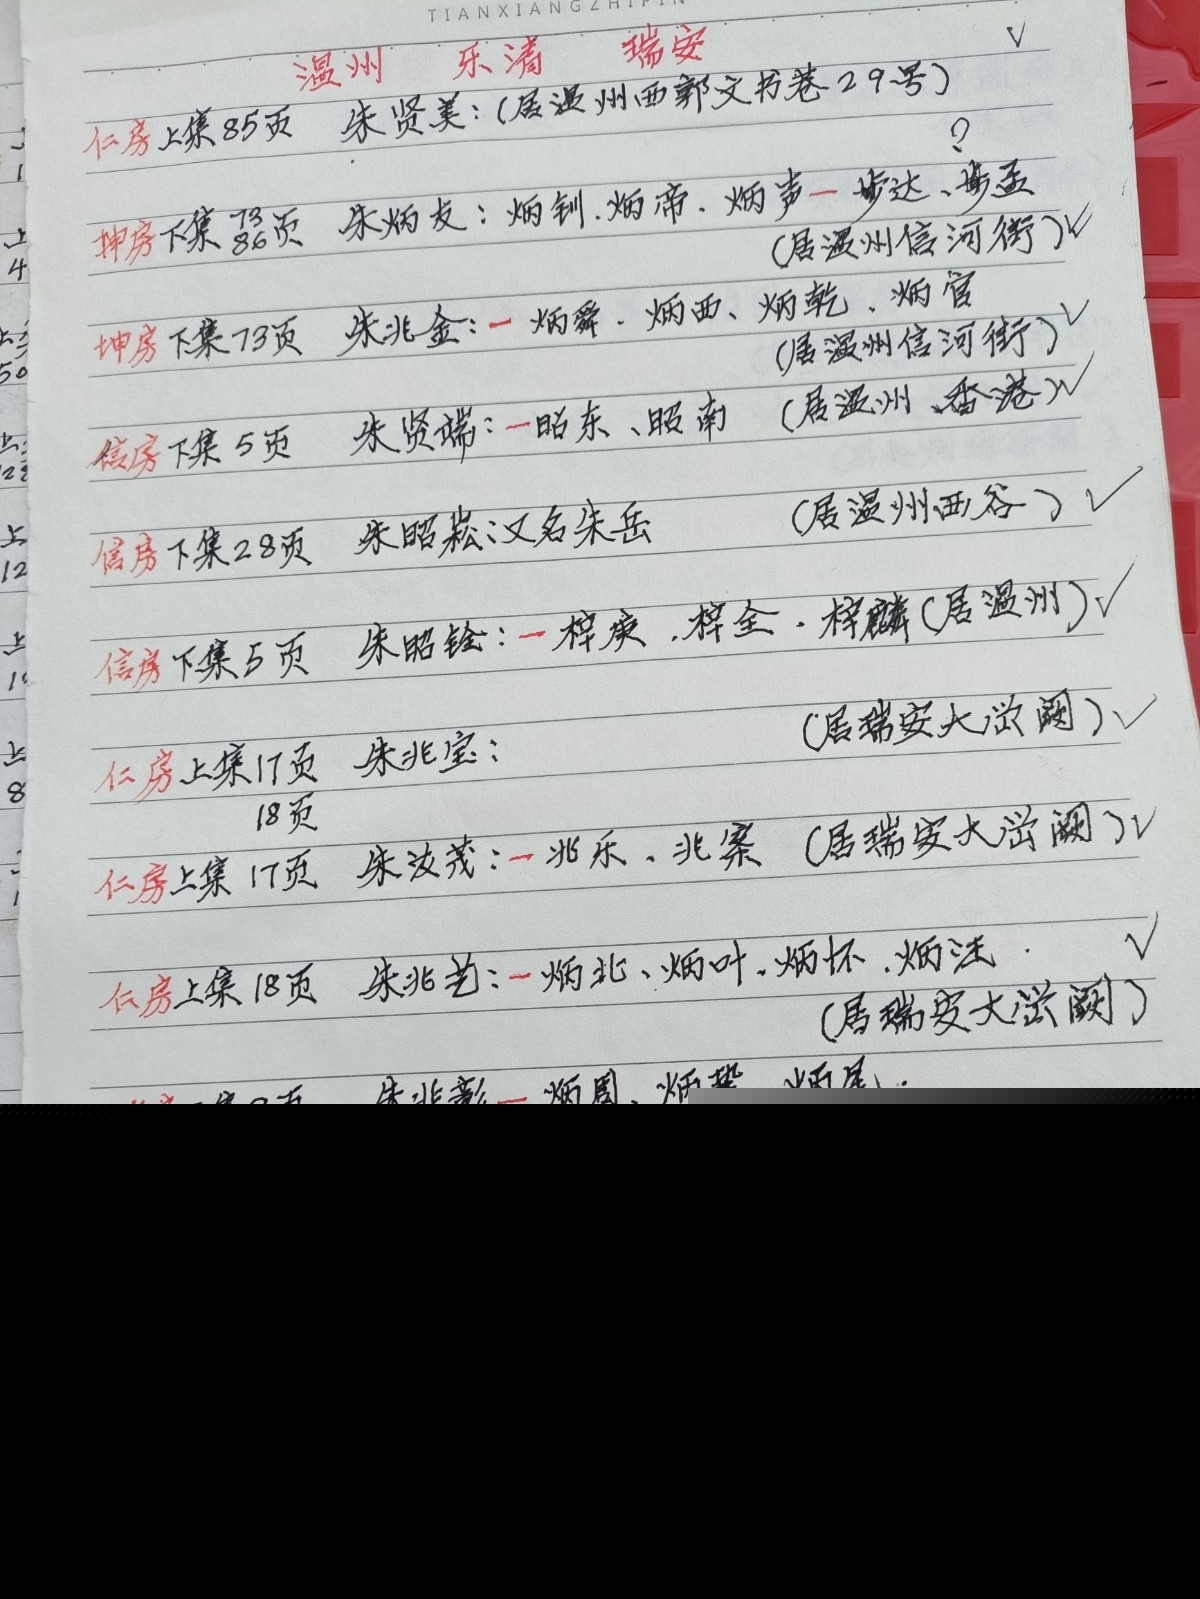 TIANXIANGZHIPIN
温州 乐清 瑞安
仁房上集85页 朱贤美:(居温州西郭文书巷29号)
?
坤房下集73 86页 朱炳友:炳钊.炳帝.炳声一步达、步孟
(居温州信河街)
坤房下集73页 朱兆金:一炳舜.炳西、炳乾、炳官
(居温州信河街)
信房下集5页 朱贤端:一昭东、昭南 (居温州、香港)
信房下集28页 朱昭崧:又名朱岳 (居温州西谷)
信房下集5页 朱昭铨:一梓庚.梓全.梓麟(居温州)
仁房上集17页 朱兆宝: (居瑞安大峃阙)
18页
仁房上集17页 朱汝茂:一兆乐、兆案 (居瑞安大峃阙)
仁房上集18页 朱兆艺:一炳北、炳叶、炳怀.炳汪
(居瑞安大峃阙)
朱兆彰一炳周、炳